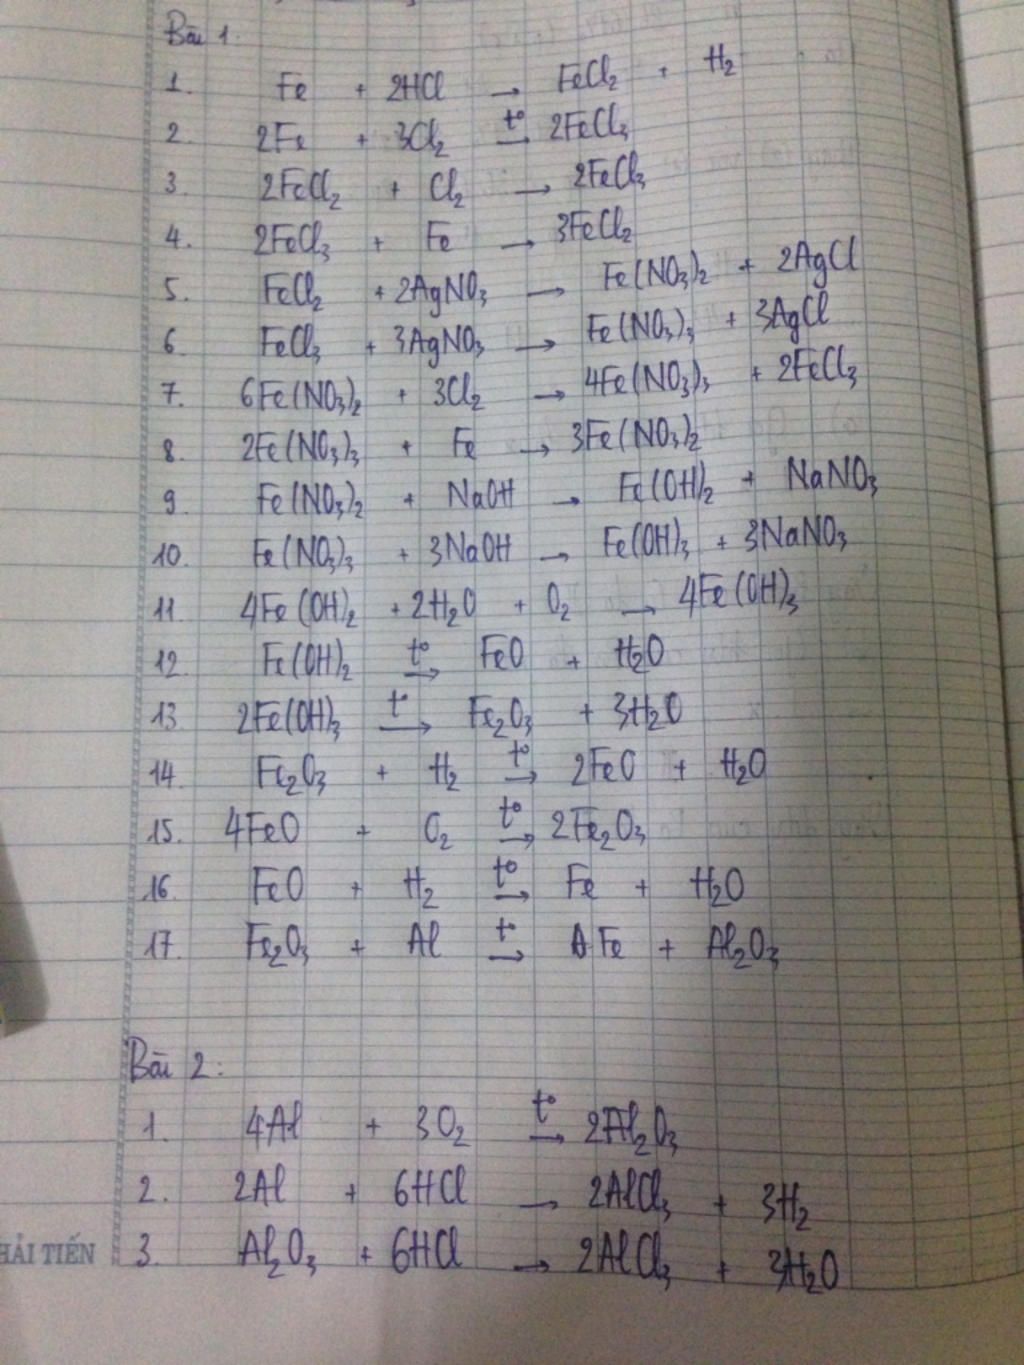 Bài 1.
1. Fe + 2HCl → FeCl₂ + H₂
2. 2Fe + 3Cl₂ t°→ 2FeCl₃
3. 2FeCl₂ + Cl₂ → 2FeCl₃
4. 2FeCl₃ + Fe → 3FeCl₂
5. FeCl₂ + 2AgNO₃ → Fe(NO₃)₂ + 2AgCl
6. FeCl₃ + 3AgNO₃ → Fe(NO₃)₃ + 3AgCl
7. 6Fe(NO₃)₂ + 3Cl₂ → 4Fe(NO₃)₃ + 2FeCl₃
8. 2Fe(NO₃)₃ + Fe → 3Fe(NO₃)₂
9. Fe(NO₃)₂ + NaOH → Fe(OH)₂ + NaNO₃
10. Fe(NO₃)₃ + 3NaOH → Fe(OH)₃ + 3NaNO₃
11. 4Fe(OH)₂ + 2H₂O + O₂ → 4Fe(OH)₃
12. Fe(OH)₂ t°→ FeO + H₂O
13. 2Fe(OH)₃ t°→ Fe₂O₃ + 3H₂O
14. Fe₂O₃ + H₂ t°→ 2FeO + H₂O
15. 4FeO + O₂ t°→ 2Fe₂O₃
16. FeO + H₂ t°→ Fe + H₂O
17. Fe₂O₃ + Al t°→ Fe + Al₂O₃
Bài 2:
1. 4Al + 3O₂ t°→ 2Al₂O₃
2. 2Al + 6HCl → 2AlCl₃ + 3H₂
3. Al₂O₃ + 6HCl → 2AlCl₃ + 3H₂O
HẢI TIẾN